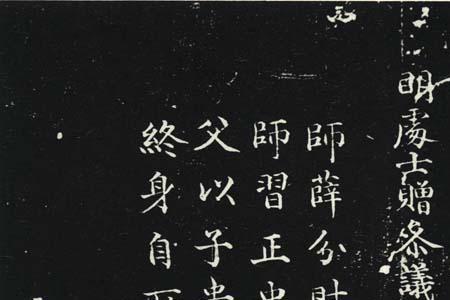 明處士贈參議
師薛分
師習正
父以子
終身自